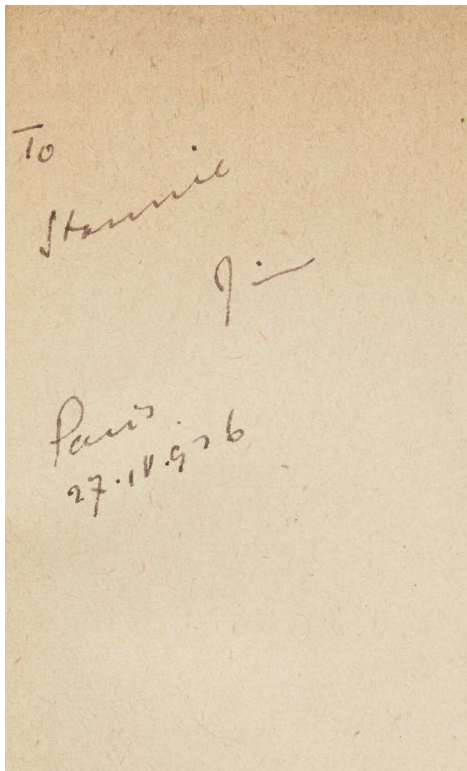 To
Stannie
Jim
Paris.
27.IV.936